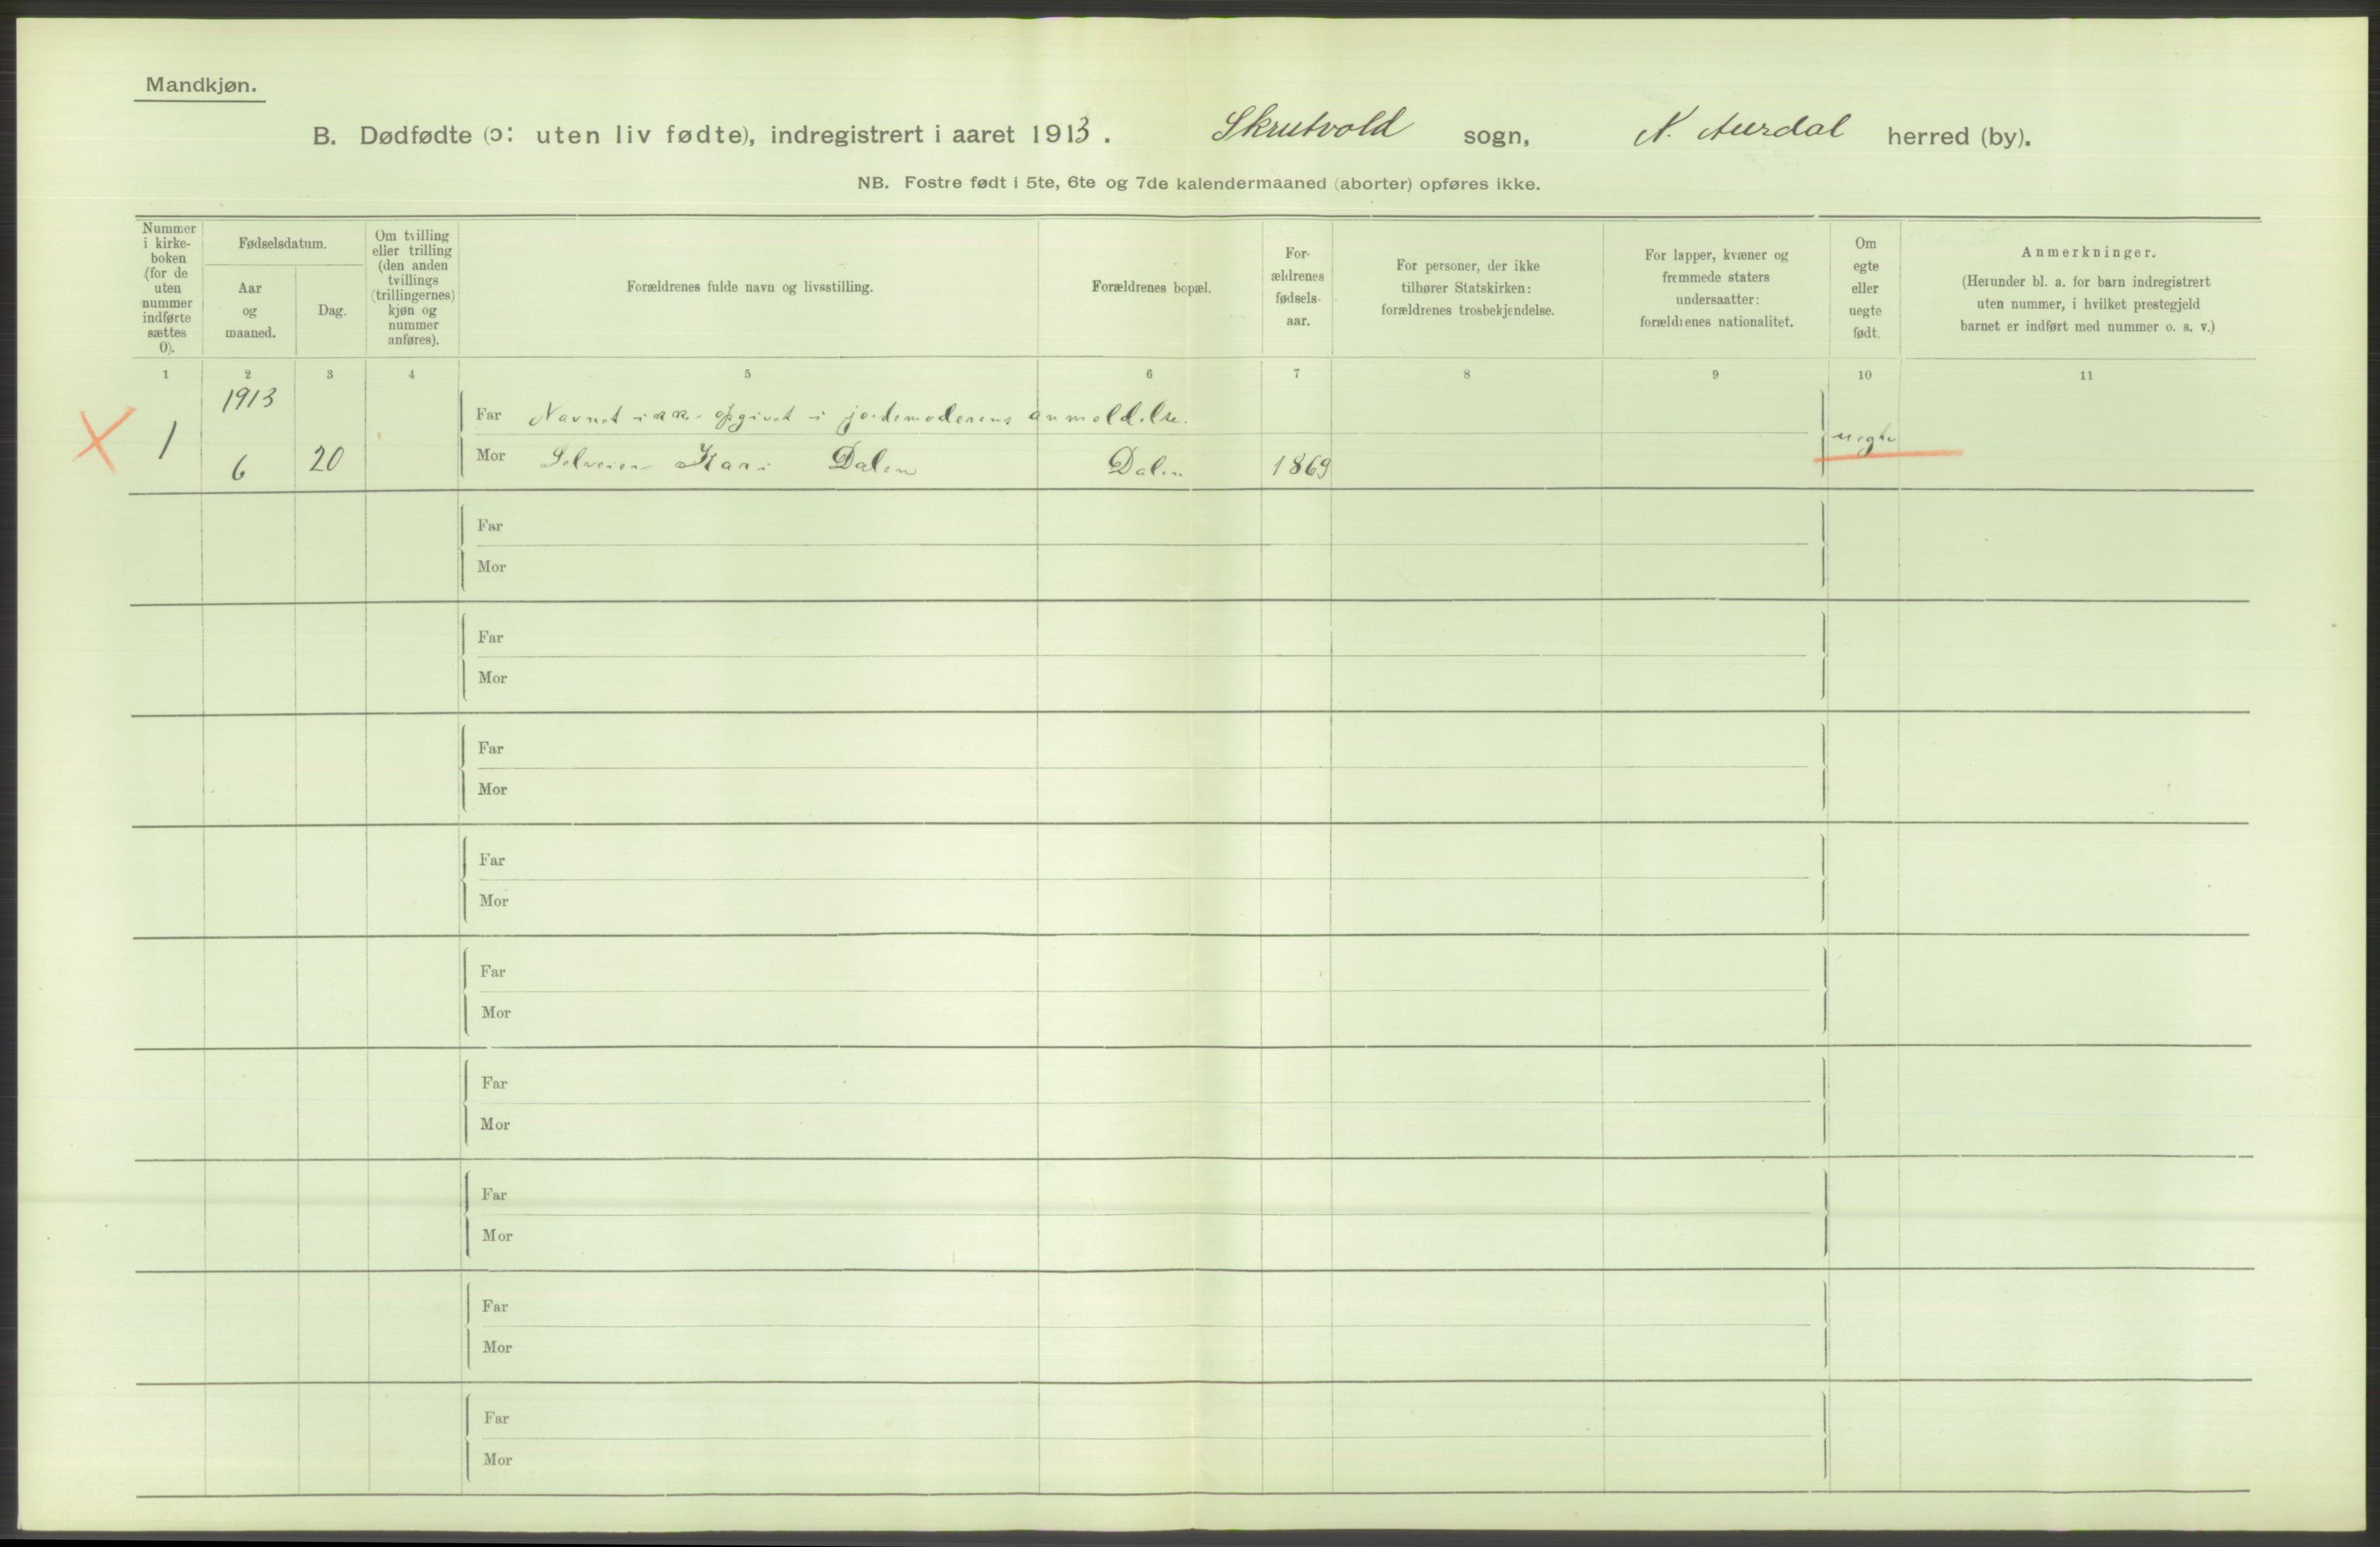 Mandkjøn.
B. Dødfødte (ɔ: uten liv fødte), indregistrert i aaret 1913. Skrutvold sogn, N. Aurdal herred (by).
NB. Fostre født i 5te, 6te og 7de kalendermaaned (aborter) opføres ikke.
Nummer
i kirke-
boken
(for de
uten
nummer
indførte
sættes
0).
Fødselsdatum.
Aar
og
maaned.
Dag.
Om tvilling
eller trilling
(den anden
tvillings
(trillingernes)
kjøn og
nummer
anføres).
Forældrenes fulde navn og livsstilling.
Forældrenes bopæl.
For-
ældrenes
fødsels-
aar.
For personer, der ikke
tilhører Statskirken:
forældrenes trosbekjendelse.
For lapper, kvæner og
fremmede staters
undersaatter:
forældrenes nationalitet.
Om
egte
eller
uegte
født.
Anmerkninger.
(Herunder bl. a. for barn indregistrert
uten nummer, i hvilket prestegjeld
barnet er indført med nummer o. s. v.)
1 2 3 4 5 6 7 8 9 10 11
1913
Far Navnet ikke opgivet i jordemoderens anmeldelse.
1 6 20 Mor Selveier Kari Dalen Dalen 1869 uegte
Far
Mor
Far
Mor
Far
Mor
Far
Mor
Far
Mor
Far
Mor
Far
Mor
Far
Mor
Far
Mor